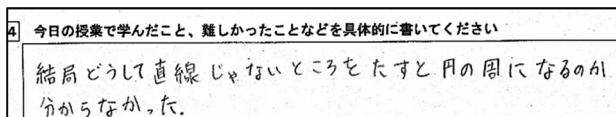 4 今日の授業で学んだこと、難しかったことなどを具体的に書いてください
結局どうして直線じゃないところをたすと円の周になるのか
分からなかった.